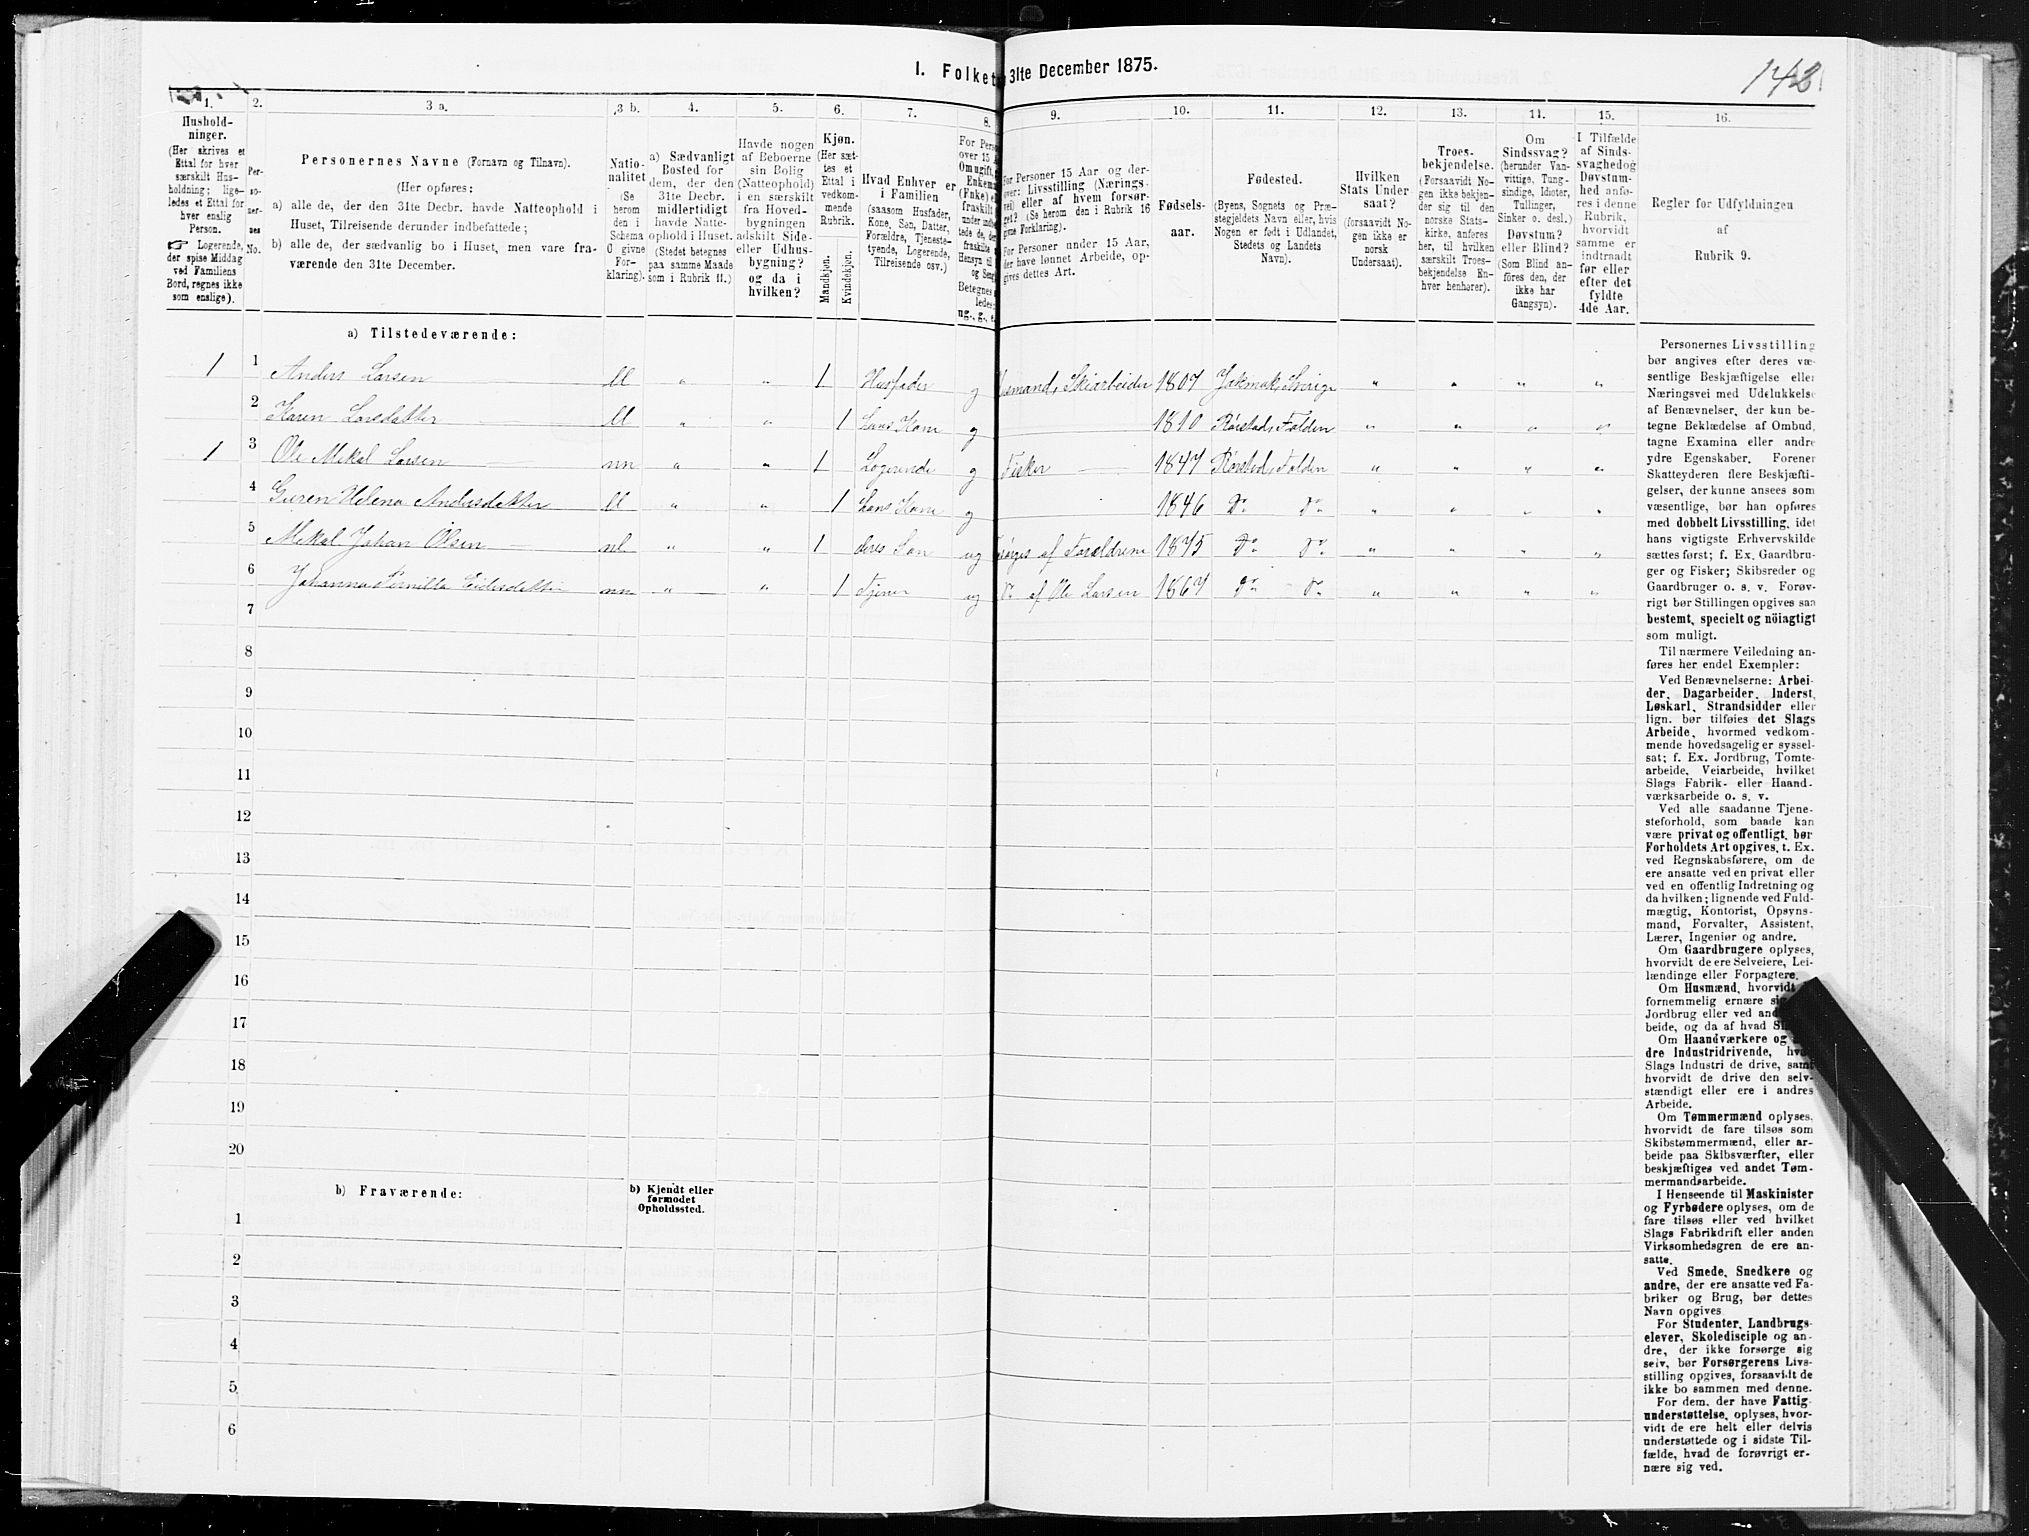 I. Folket
31te December 1875.
142
1.
Hushold-
ninger.
(Her skrives et
Ettal for hver
særskilt Hus-
holdning; lige-
ledes et Ettal for
hver enslig
Person.
☞ Logerende,
der spise Middag
ved Familiens
Bord, regnes ikke
som enslige).
2.
Per-
so-
ner-
nes
No.
3 a.
Personernes Navne (Fornavn og Tilnavn).
(Her opføres:
a) alle de, der den 31te Decbr. havde Natteophold i
Huset, Tilreisende derunder indbefattede;
b) alle de, der sædvanlig bo i Huset, men vare fra-
værende den 31te December.
3 b.
Natio-
nalitet
(Se
herom
den i
Schema
O givne
For-
klaring).
4.
a) Sædvanligt
Bosted for
dem, der den
31te Decbr.
midlertidigt
havde Natte-
ophold i Huset.
(Stedet betegnes
paa samme Maade
som i Rubrik 11.)
5.
Havde nogen
af Beboerne
sin Bolig
(Natteophold)
i en særskilt
fra Hoved-
bygningen
adskilt Side-
eller Udhus-
bygning?
og da i
hvilken?
6.
Kjøn.
(Her sæt-
tes et
Ettal i
vedkom-
mende
Rubrik.
Mandkjøn.
Kvindekjøn.
7.
Hvad Enhver er
i Familien
(saasom Husfader,
Kone, Søn, Datter,
Forældre, Tjeneste-
tyende, Logerende,
Tilreisende osv.)
8.
For Pers
over 15 A
Om ugift,
Enkem
(Enke) e
fraskilt
ug., g., e.
9.
For Personer 15 Aar og der-
over: Livsstilling (Nærings-
vei) eller af hvem forsør-
get? (Se herom den i Rubrik 16
givne Forklaring).
For Personer under 15 Aar,
der have lønnet Arbeide, op-
gives dettes Art.
10.
Fødsels-
aar.
11.
Fødested.
(Byens, Sognets og Præ-
stegjeldets Navn eller, hvis
Nogen er født i Udlandet,
Stedets og Landets
Navn).
12.
Hvilken
Stats Under-
saat?
(forsaavidt No-
gen ikke er
norsk
Undersaat).
13.
Troes-
bekjendelse.
(Forsaavidt No-
gen ikke bekjen-
der sig til den
norske Stats-
kirke, anføres
her, til hvilken
særskilt Troes-
bekjendelse En-
hver henhører).
14.
Om
Sindssvag?
(herunder Van-
vittige, Tung-
sindige, Idioter,
Tullinger,
Sinker o. desl.)
Døvstum?
eller Blind?
(Som Blind an-
føres den, der
ikke har
Gangsyn).
15.
I Tilfælde
af Sinds-
svaghed og
Døvstum-
hed anfø-
res i denne
Rubrik,
hvorvidt
samme er
indtraadt
før eller
efter det
fyldte
4de Aar.
16.
Regler for Udfyldningen
af
Rubrik 9.
a) Tilstedeværende:
1 1 Anders Larsen ll " " 1 Husfader g smand, Skiarbeider 1807 Jokmok, Sverige " " " "
2 Karen Larsdatter ll " " 1 Hans Kone g 1810 Rørstad, Folden " " " "
1 3 Ole Mikal Larsen nn " " 1 Logerende g Fisker 1847 Rørstad, Folden " " " "
4 Guren Helena Andersdatter ll " " 1 Hans Kone g 1846 Do Do " " " "
5 Mikal Johan Olsen nl " " 1 deres Søn ug sørges af Forældrene 1875 Do Do " " " "
6 Johanna Pernilla nn " " 1 Tjener ug Do af Ole Larsen 1867 Do Do " " " "
7
8
9
10
11
12
13
14
15
16
17
18
19
20
b) Fraværende:
b) Kjendt eller
formodet
Opholdssted.
1
2
3
4
5
6
Personernes Livsstilling
bør angives efter deres væ-
sentlige Beskjæftigelse eller
Næringsvei med Udelukkelse
af Benævnelser, der kun be-
tegne Beklædelse af Ombud,
tagne Examina eller andre
ydre Egenskaber. Forener
Skatteyderen flere Beskjæfti-
gelser, der kunne ansees som
væsentlige, bør han opføres
med dobbelt Livsstilling, idet
hans vigtigste Erhvervskilde
sættes først; f. Ex. Gaardbru-
ger og Fisker; Skibsreder og
Gaardbruger o. s. v. Forøv-
rigt bør Stillingen opgives saa
bestemt, specielt og nöiagtigt
som muligt.
Til nærmere Veiledning an-
føres her endel Exempler:
Ved Benævnelserne: Arbei-
der, Dagarbeider, Inderst,
Løskarl, Strandsidder eller
lign. bør tilføies det Slags
Arbeide, hvormed vedkom-
mende hovedsagelig er syssel-
sat; f. Ex. Jordbrug, Tomte-
arbeide, Veiarbeide, hvilket
Slags Fabrik- eller Haand-
værksarbeide o. s. v.
Ved alle saadanne Tjene-
steforhold, som baade kan
være privat og offentligt, bør
Forholdets Art opgives, t. Ex.
ved Regnskabsførere, om de
ere ansatte ved en privat eller
ved en offentlig Indretning og
da hvilken; lignende ved Fuld-
mægtig, Kontorist, Opsyns-
mand, Forvalter, Assistent,
Lærer, Ingeniør og andre.
Om Gaardbrugere oplyses,
hvorvidt de ere Selveiere, Lei-
lændinge eller Forpagtere.
Om Husmænd, hvorvidt
fornemmelig ernære si
Jordbrug eller ved an
beide, og da af hvad S
Om Haandværkere og
dre Industridrivende, hv
Slags Industri de drive, samt
hvorvidt de drive den selv-
stændigt eller ere i andres
Arbeide.
Om Tømmermænd oplyses,
hvorvidt de fare tilsøs som
Skibstømmermænd, eller ar-
beide paa Skibsværfter, eller
beskjæftiges ved andet Tøm-
mermandsarbeide.
I Henseende til Maskinister
og Fyrbødere oplyses, om de
fare tilsøs eller ved hvilket
Slags Fabrikdrift eller anden
Virksomhedsgren de ere an-
satte.
Ved Smede, Snedkere og
andre, der ere ansatte ved Fa-
briker og Brug, bør dettes
Navn opgives.
For Studenter, Landbrugs-
elever, Skoledisciple og an-
dre, der ikke forsørge sig
selv, bør Forsørgerens Livs-
stilling opgives, forsaavidt de
ikke bo sammen med denne.
For dem, der have Fattig-
understøttelse, oplyses, hvor-
vidt de ere helt eller delvis
understøttede og i sidste Til-
fælde, hvad de forøvrigt er-
nære sig ved.